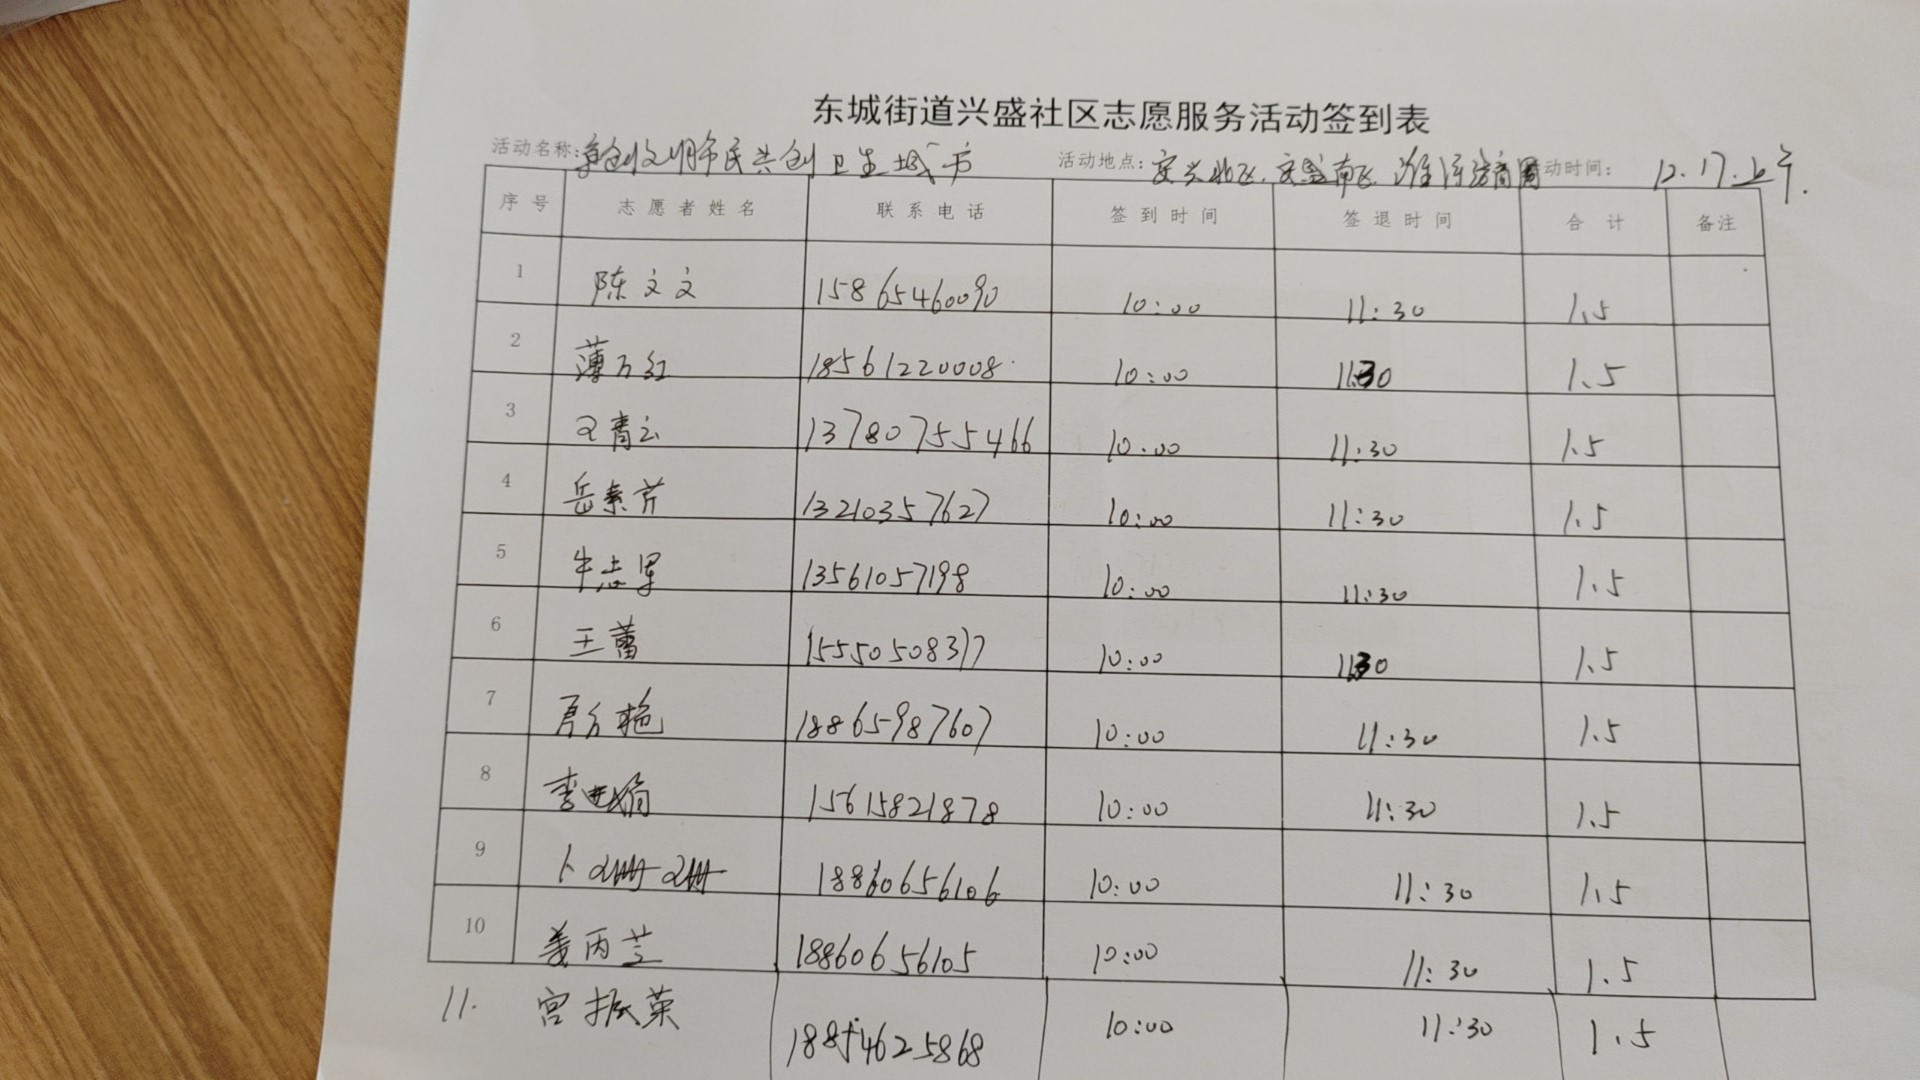 东城街道兴盛社区志愿服务活动签到表
活动名称: 争创文明市民共创卫生城市 活动地点: 安兴北区.安盛南区. 动时间: 12.17.上午.
序号 志愿者姓名 联系电话 签到时间 签退时间 合计 备注
1 陈文文 15865460090 10:00 11:30 1.5
2 薄万红 18561220008 10:00 11:30 1.5
3 青云 137807555466 10:00 11:30 1.5
4 岳素芹 13210357627 10:00 11:30 1.5
5 牛志军 13561057198 10:00 11:30 1.5
6 王蕾 15550508317 10:00 11:30 1.5
7 艳 18865987607 10:00 11:30 1.5
8 李 娟 15615821878 10:00 11:30 1.5
9 卜 18860656106 10:00 11:30 1.5
10 姜丙兰 18860656105 10:00 11:30 1.5
11. 宫振荣 18854625868 10:00 11:30 1.5